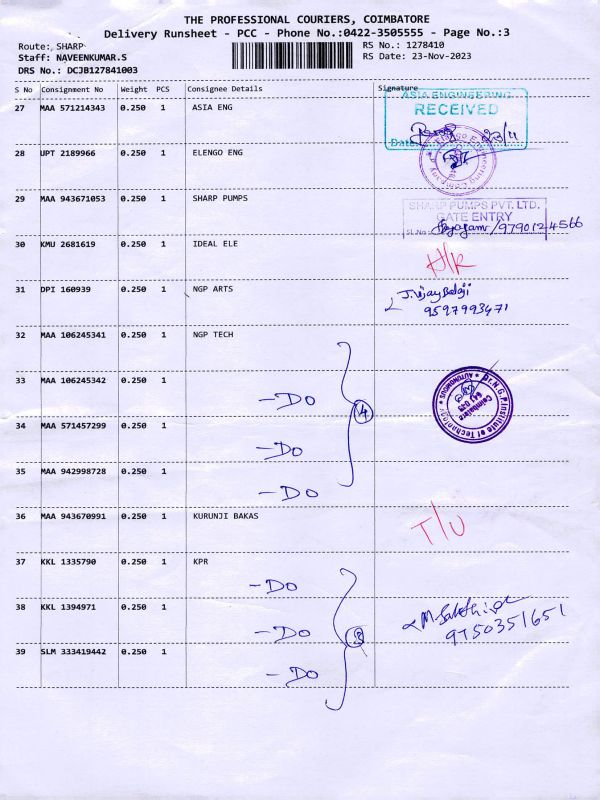 THE PROFESSIONAL COURIERS, COIMBATORE
Delivery Runsheet - PCC - Phone No.:0422-3505555 - Page No.:3
Route: SHARP
RS No.: 1278410
Staff: NAVEENKUMAR.S
RS Date: 23-Nov-2023
DRS No.: DCJB127841003
S No Consignment No Weight PCS Consignee Details Signature
27 MAA 571214343 0.250 1 ASIA ENG
ASIA ENGINEERING
RECEIVED
Date: 23/11
28 UPT 2189966 0.250 1 ELENGO ENG
Elengo Engineering Company
29 MAA 943671053 0.250 1 SHARP PUMPS
SHARP PUMPS PVT. LTD.
GATE ENTRY
SL.No: /9790124566
30 KMU 2681619 0.250 1 IDEAL ELE
31 DPI 160939 0.250 1 NGP ARTS
J. Vijay Balaji
9597993471
32 MAA 106245341 0.250 1 NGP TECH
33 MAA 106245342 0.250 1
-Do
4
Dr.N.G.P.Institute of Technology
AUTONOMOUS
Coimbatore
641 048
34 MAA 571457299 0.250 1
-Do
35 MAA 942998728 0.250 1
-Do
36 MAA 943670991 0.250 1 KURUNJI BAKAS
T/U
37 KKL 1335790 0.250 1 KPR
-Do
38 KKL 1394971 0.250 1
-Do
3
9750351651
39 SLM 333419442 0.250 1
-Do